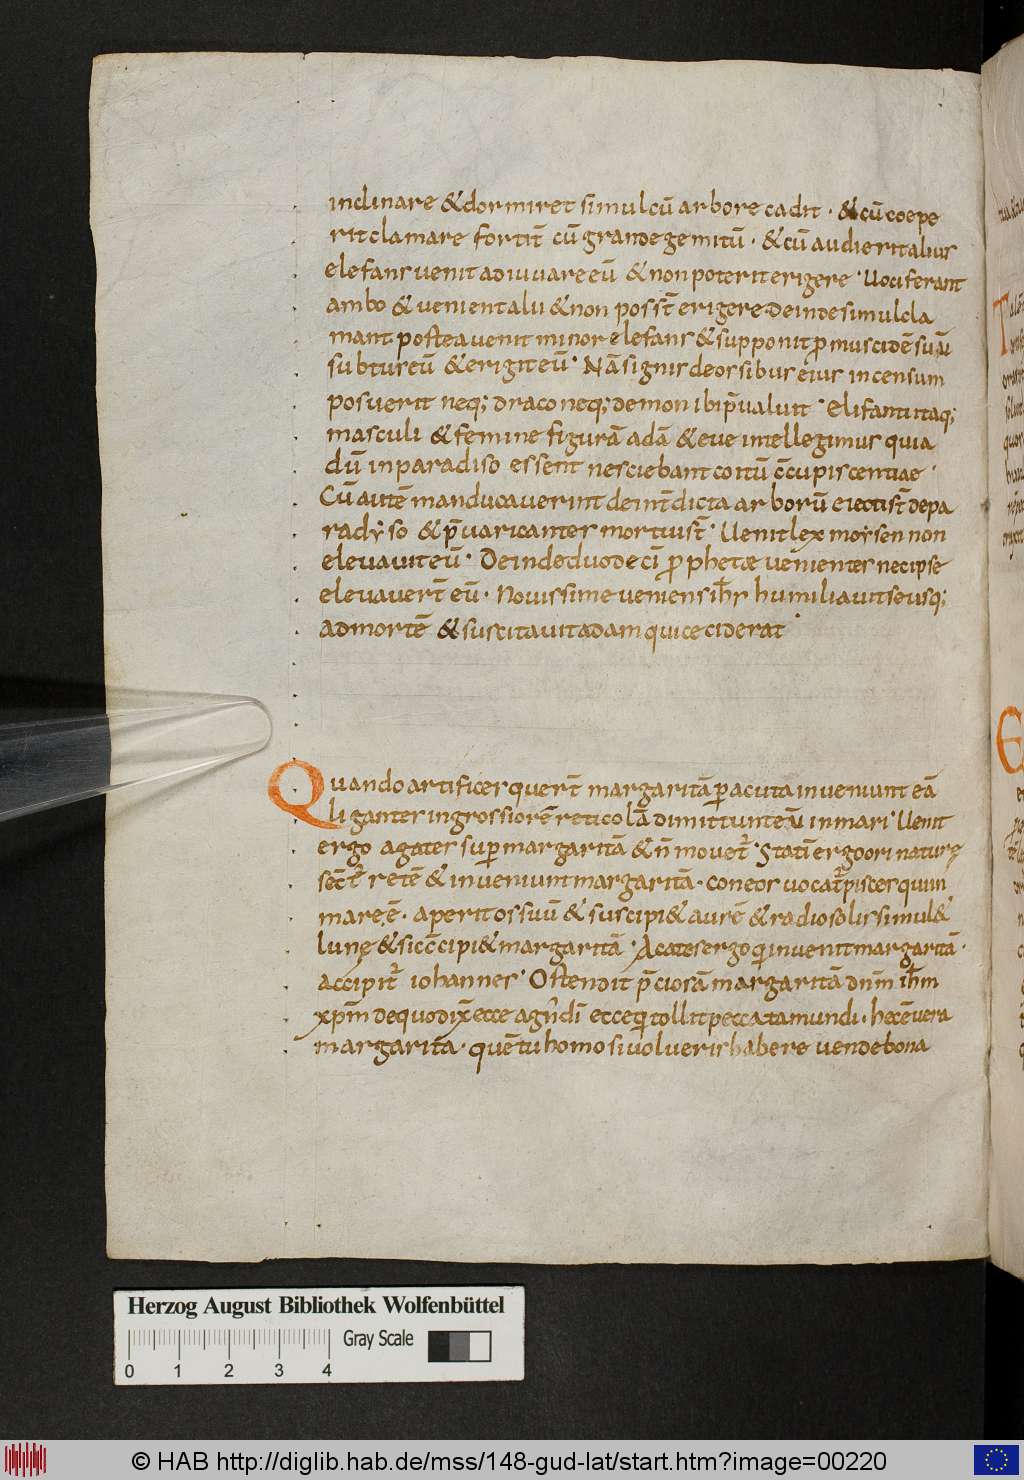 inclinare & dormiret simul cū arbore cadit · & cū coepe
rit clamare fortit̄ cū grande gemitū · & cū audierit alius
elefans venit adiuvare eū & non poterit erigere · Vociferant
ambo & venient alii & non poss̄t erigere deinde simul cla
mant postea venit minor elefans & supponit pmuscidē suā
subtus eū & erigit eū · Nā signis de orsibus eius incensum
posuerit neq; draco neq; demon ibi p̄valuit · Elifanti itaq;
masculi & femine figurā adā & eve intellegimus quia
dū in paradiso essent nesciebant coitū c̄cupiscentiae ·
Cū autē manducaverint de int̄dicta arborū eiecti st̄ de pa
radẏso & p̄varicanter mortui st̄ · Venit lex moẏsen non
elevavit eū · Deinde duodeci p̄phetæ venientes nec ipse
elevavert̄ eū · Novissime veniens ih̄s humiliavit se usq;
ad mortē & suscitavit adam qui ceciderat ·
Quando artifices quert̄ margaritā p acuta inveniunt eā
ligantes in grossiorē reticolā dimittunt eā in mari · Venit
ergo agates sup margaritā & n̄ movet̄ · Statī ergo ori nature
sec̄t̄ retē & inveniunt margaritā · coneos vocat̄ pisces qui in
mare ē · aperit os suū & suscipi& aurē & radio solis simul &
lune & sic c̄cipi& margaritā · Acates ergo qi invenit margaritā ·
accipit̄ iohannes · Ostendit p̄ciosā margaritā dn̄m ih̄m
xp̄m de quo dix̄ ecce agn̄ dī ecce qi tollit peccata mundi · hec ē vera
margarita · quē tu homo si volueris habere vende bona
Herzog August Bibliothek Wolfenbüttel
Gray Scale
0 1 2 3 4
© HAB http://diglib.hab.de/mss/148-gud-lat/start.htm?image=00220